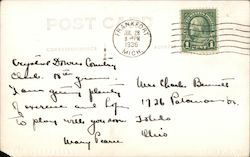 POST CARD
CORRESPONDENCE
FRANKFORT
JUL 28
8 - PM
1936
MICH.
1
1
Crystal Downs Country
Club. 10th green
I am giving plenty
of exercise and hope
to play with you soon
Mary Pearce
Mrs Charles Bennett
1726 Potomac Dr.
Toledo
Ohio